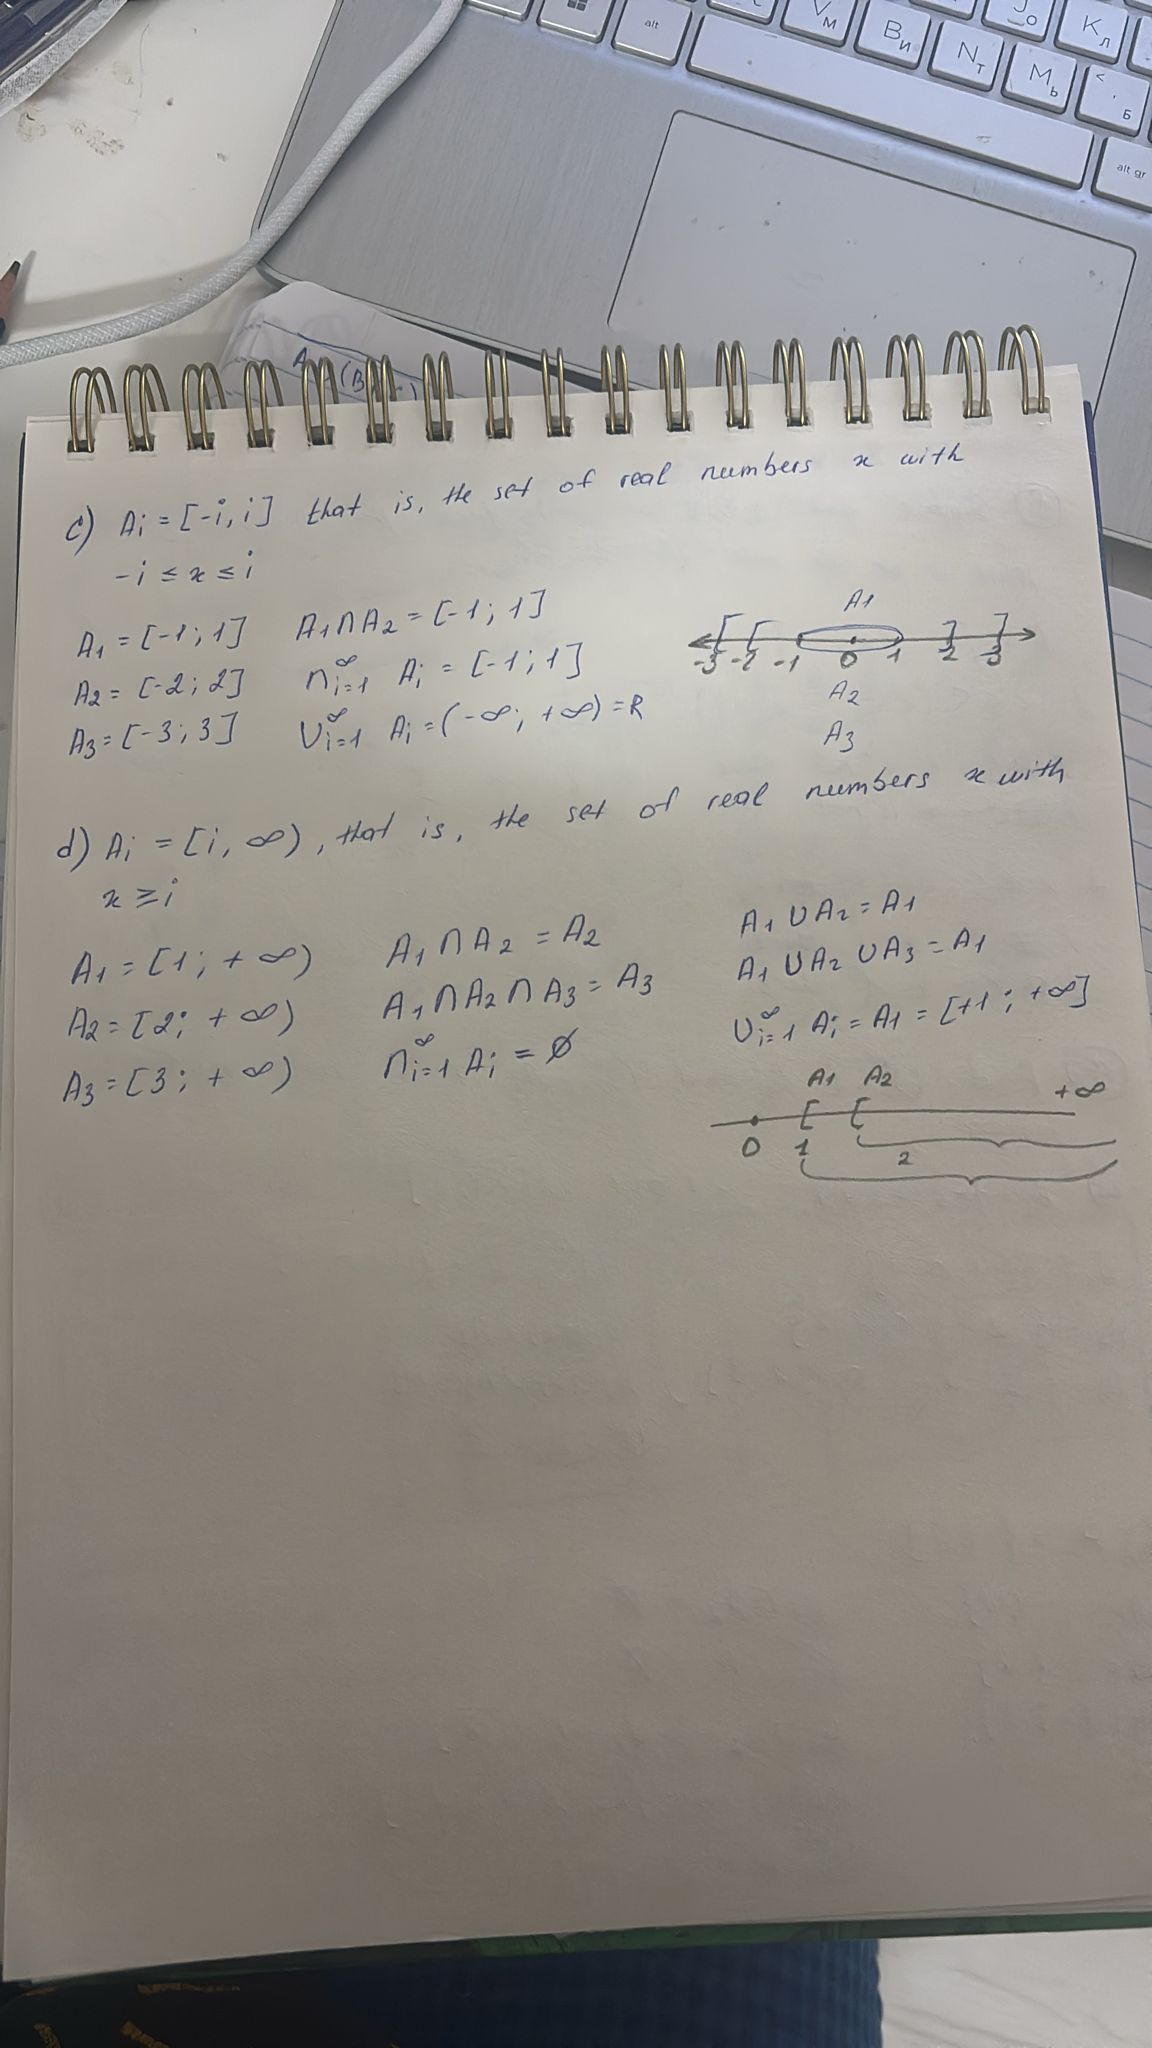 alt
V м
B и
N т
M ь
J о
K л
< , б
alt gr
A (B
c) Ai = [-i, i] that is, the set of real numbers x with
-i ≤ x ≤ i
A1 = [-1; 1] A1 ∩ A2 = [-1; 1]
A2 = [-2; 2] ∩∞i=1 Ai = [-1; 1]
A3 = [-3; 3] ∪∞i=1 Ai = (-∞; +∞) = R
A1
-3 -2 -1 0 1 2 3
A2
A3
d) Ai = [i, ∞), that is, the set of real numbers x with
x ≥ i
A1 = [1; +∞) A1 ∩ A2 = A2 A1 ∪ A2 = A1
A2 = [2; +∞) A1 ∩ A2 ∩ A3 = A3 A1 ∪ A2 ∪ A3 = A1
A3 = [3; +∞) ∩∞i=1 Ai = Ø ∪∞i=1 Ai = A1 = [+1; +∞]
A1 A2 +∞
0 1 2